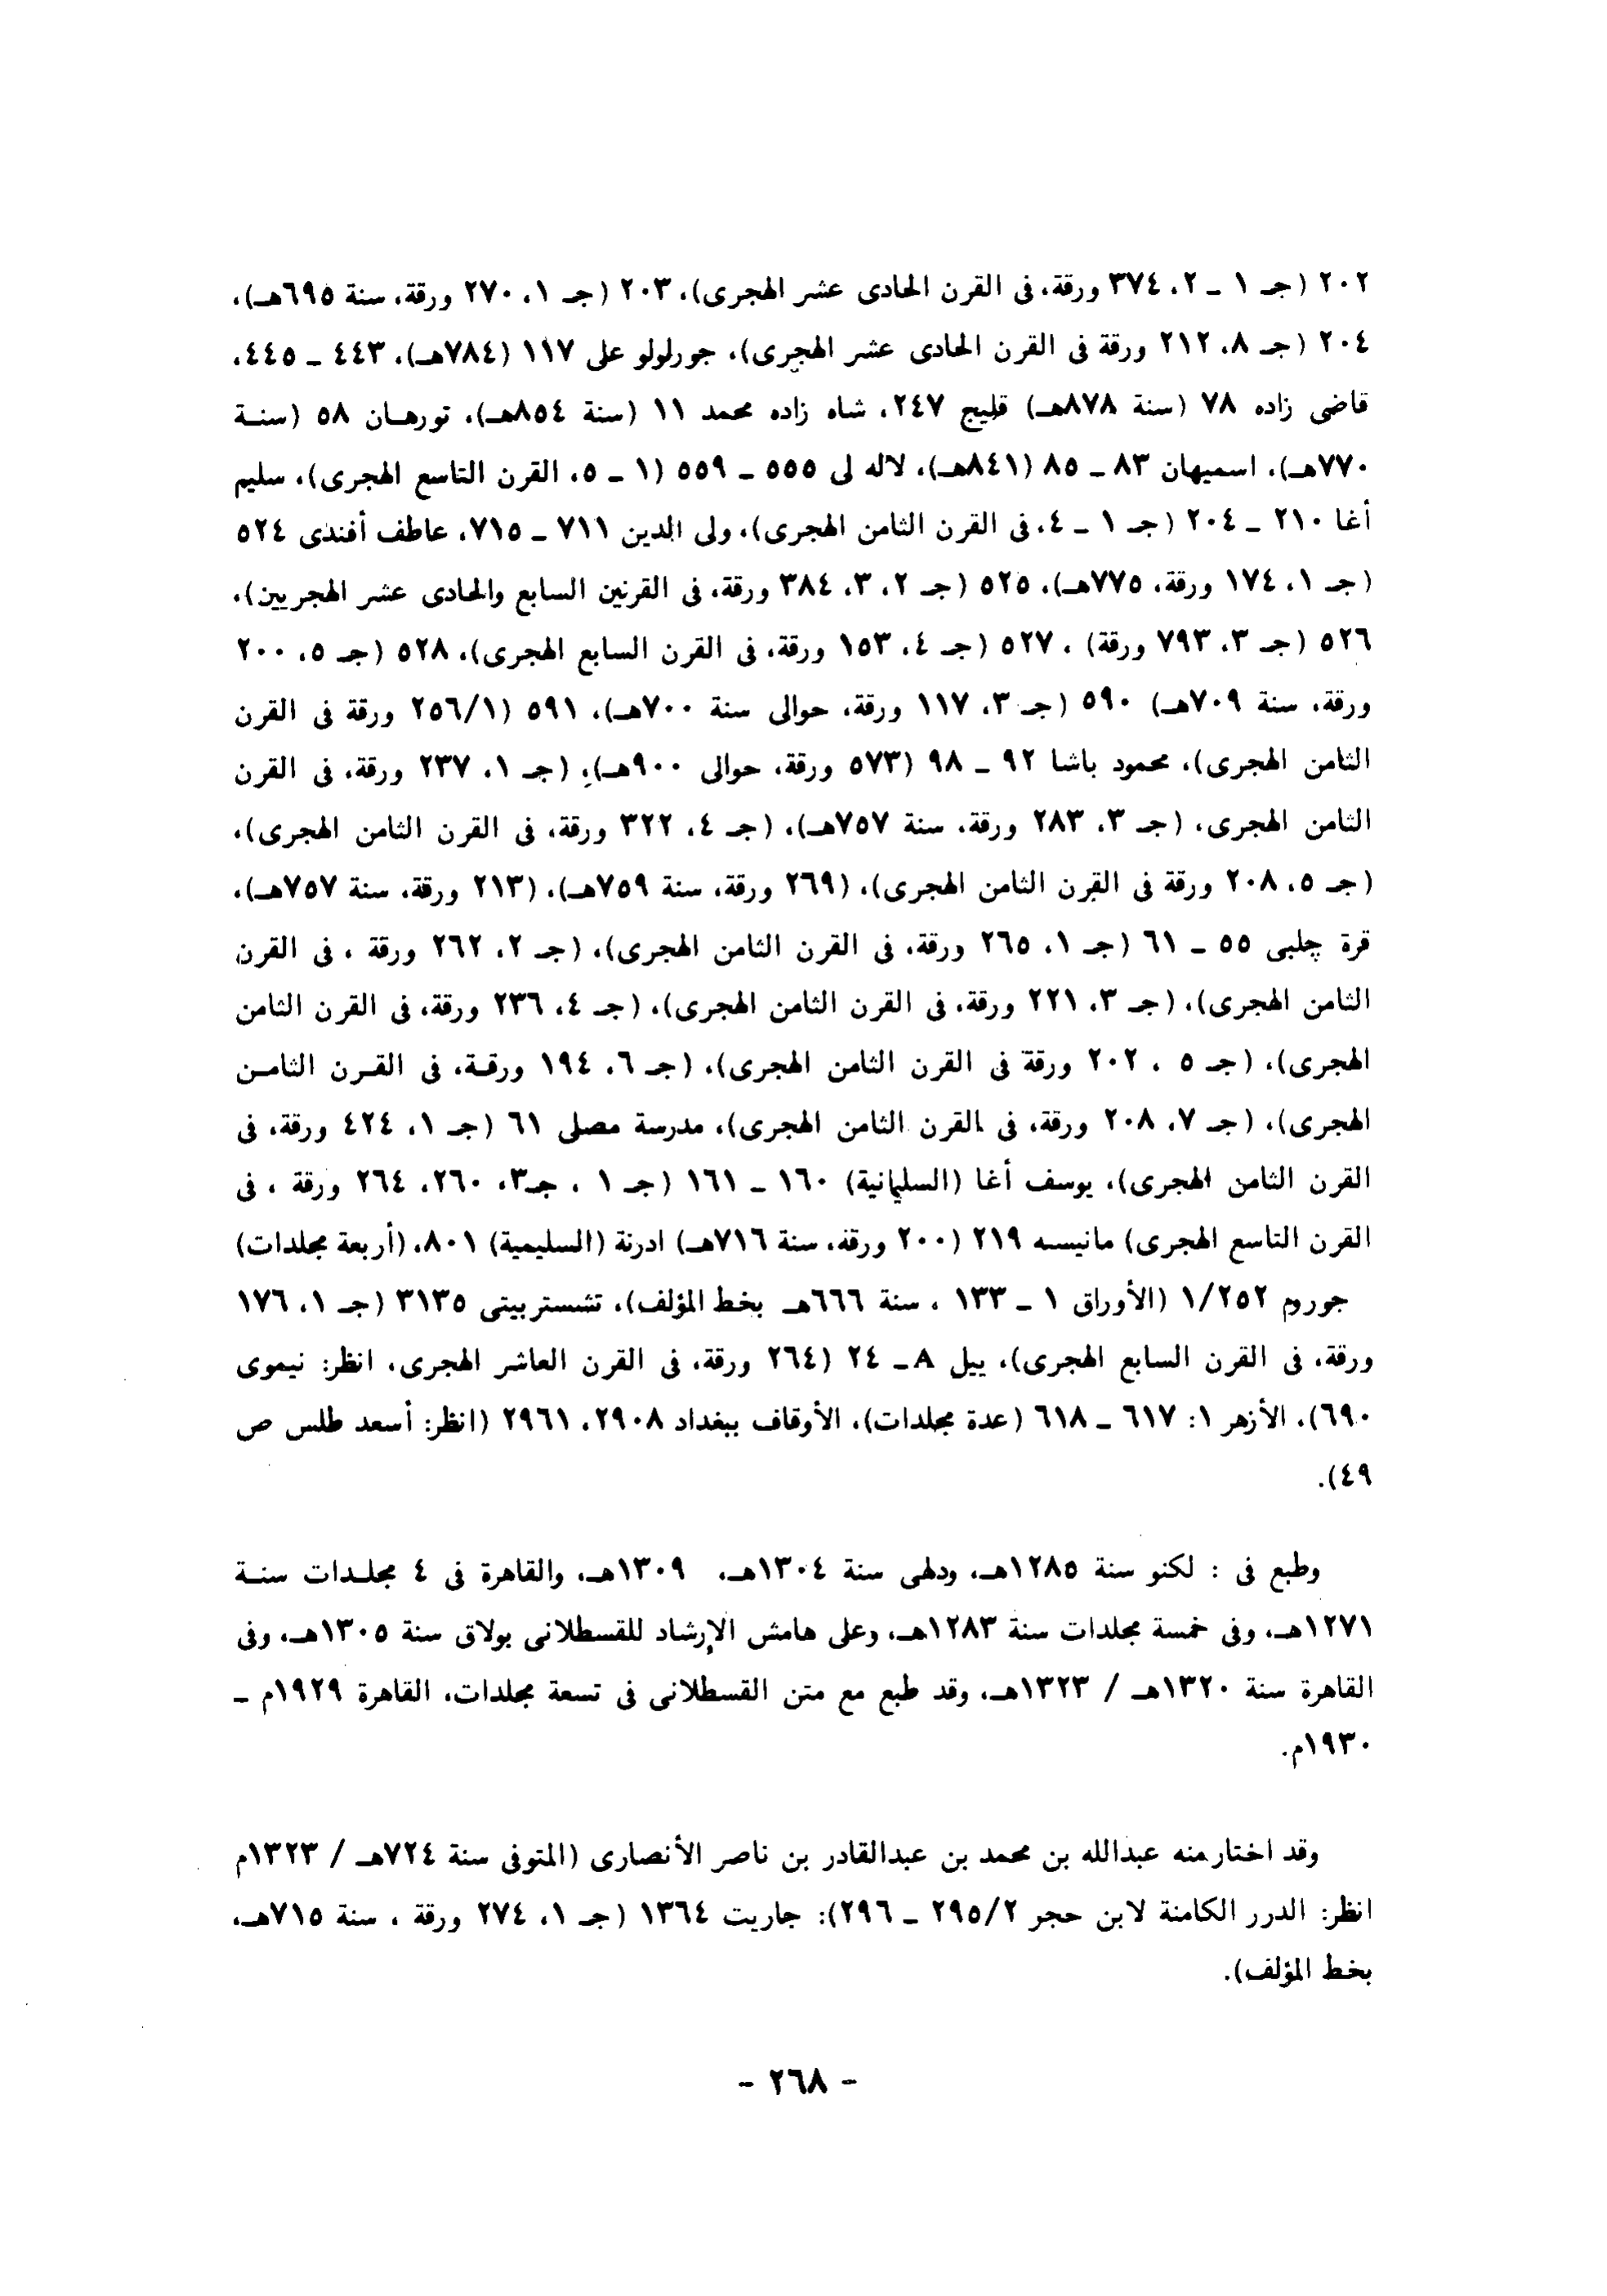 ٢٠٢ (جـ ١ ـ ٢، ٣٧٤ ورقة، فى القرن الحادى عشر الهجرى)، ٢٠٣ (جـ ١، ٢٧٠ ورقة، سنة ٦٩٥هـ)،
٢٠٤ (جـ ٨، ٢١٢ ورقة فى القرن الحادى عشر الهجرى)، جورلولو على ١١٧ (٧٨٤هـ)، ٤٤٣ ـ ٤٤٥،
قاضى زاده ٧٨ (سنة ٨٧٨هـ) قليج ٢٤٧، شاه زاده محمد ١١ (سنة ٨٥٤هـ)، تورهـان ٥٨ (سنـة
٧٧٠هـ)، اسميهان ٨٣ ـ ٨٥ (٨٤١هـ)، لاله لى ٥٥٥ ـ ٥٥٩ (١ ـ ٥، القرن التاسع الهجرى)، سليم
أغا ٢١٠ ـ ٢٠٤ (جـ ١ ـ ٤، فى القرن الثامن الهجرى)، ولى الدين ٧١١ ـ ٧١٥، عاطف أفندى ٥٢٤
(جـ ١، ١٧٤ ورقة، ٧٧٥هـ)، ٥٢٥ (جـ ٢، ٣، ٣٨٤ ورقة، فى القرنين السابع والحادى عشر الهجريين)،
٥٢٦ (جـ ٣، ٧٩٣ ورقة) ، ٥٢٧ (جـ ٤، ١٥٣ ورقة، فى القرن السابع الهجرى)، ٥٢٨ (جـ ٥، ٢٠٠
ورقة، سنة ٧٠٩هـ) ٥٩٠ (جـ ٣، ١١٧ ورقة، حوالى سنة ٧٠٠هـ)، ٥٩١ (٢٥٦/١ ورقة فى القرن
الثامن الهجرى)، محمود باشا ٩٢ ـ ٩٨ (٥٧٣ ورقة، حوالى ٩٠٠هـ)، (جـ ١، ٢٣٧ ورقة، فى القرن
الثامن الهجرى، (جـ ٣، ٢٨٣ ورقة، سنة ٧٥٧هـ)، (جـ ٤، ٣٢٢ ورقة، فى القرن الثامن الهجرى)،
(جـ ٥، ٢٠٨ ورقة فى القرن الثامن الهجرى)، (٢٦٩ ورقة، سنة ٧٥٩هـ)، (٢١٣ ورقة، سنة ٧٥٧هـ)،
قرة چلبى ٥٥ ـ ٦١ (جـ ١، ٢٦٥ ورقة، فى القرن الثامن الهجرى)، (جـ ٢، ٢٦٢ ورقة ، فى القرن
الثامن الهجرى)، (جـ ٣، ٢٢١ ورقة، فى القرن الثامن الهجرى)، (جـ ٤، ٢٣٦ ورقة، فى القرن الثامن
الهجرى)، (جـ ٥ ، ٢٠٢ ورقة فى القرن الثامن الهجرى)، (جـ ٦، ١٩٤ ورقـة، فى القـرن الثامـن
الهجرى)، (جـ ٧، ٢٠٨ ورقة، فى القرن الثامن الهجرى)، مدرسة مصلى ٦١ (جـ ١، ٤٢٤ ورقة، فى
القرن الثامن الهجرى)، يوسف أغا (السليمانية) ١٦٠ ـ ١٦١ (جـ ١ ، جـ٣، ٢٦٠، ٢٦٤ ورقة ، فى
القرن التاسع الهجرى) مانيسه ٢١٩ (٢٠٠ ورقة، سنة ٧١٦هـ) ادرنة (السليمية) ٨٠١، (أربعة مجلدات)
جوروم ١/٢٥٢ (الأوراق ١ ـ ١٣٣ ، سنة ٦٦٦هـ بخط المؤلف)، تشستربيتى ٣١٣٥ (جـ ١، ١٧٦
ورقة، فى القرن السابع الهجرى)، ييل A ـ ٢٤ (٢٦٤ ورقة، فى القرن العاشر الهجرى، انظر: نيموى
٦٩٠)، الأزهر ١: ٦١٧ ـ ٦١٨ (عدة مجلدات)، الأوقاف ببغداد ٢٩٠٨، ٢٩٦١ (انظر: أسعد طلس ص
٤٩).
وطبع فى : لكنو سنة ١٢٨٥هـ، ودلهى سنة ١٣٠٤هـ، ١٣٠٩هـ، والقاهرة فى ٤ مجلـدات سنـة
١٢٧١هـ، وفى خمسة مجلدات سنة ١٢٨٣هـ، وعلى هامش الإرشاد للقسطلانى بولاق سنة ١٣٠٥هـ، وفى
القاهرة سنة ١٣٢٠هـ / ١٣٢٣هـ، وقد طبع مع متن القسطلانى فى تسعة مجلدات، القاهرة ١٩٢٩م ـ
١٩٣٠م.
وقد اختار منه عبدالله بن محمد بن عبدالقادر بن ناصر الأنصارى (المتوفى سنة ٧٢٤هـ / ١٣٢٣م
انظر: الدرر الكامنة لابن حجر ٢٩٥/٢ ـ ٢٩٦): جاريت ١٣٦٤ (جـ ١، ٢٧٤ ورقة ، سنة ٧١٥هـ،
بخط المؤلف).
- ٢٦٨ -